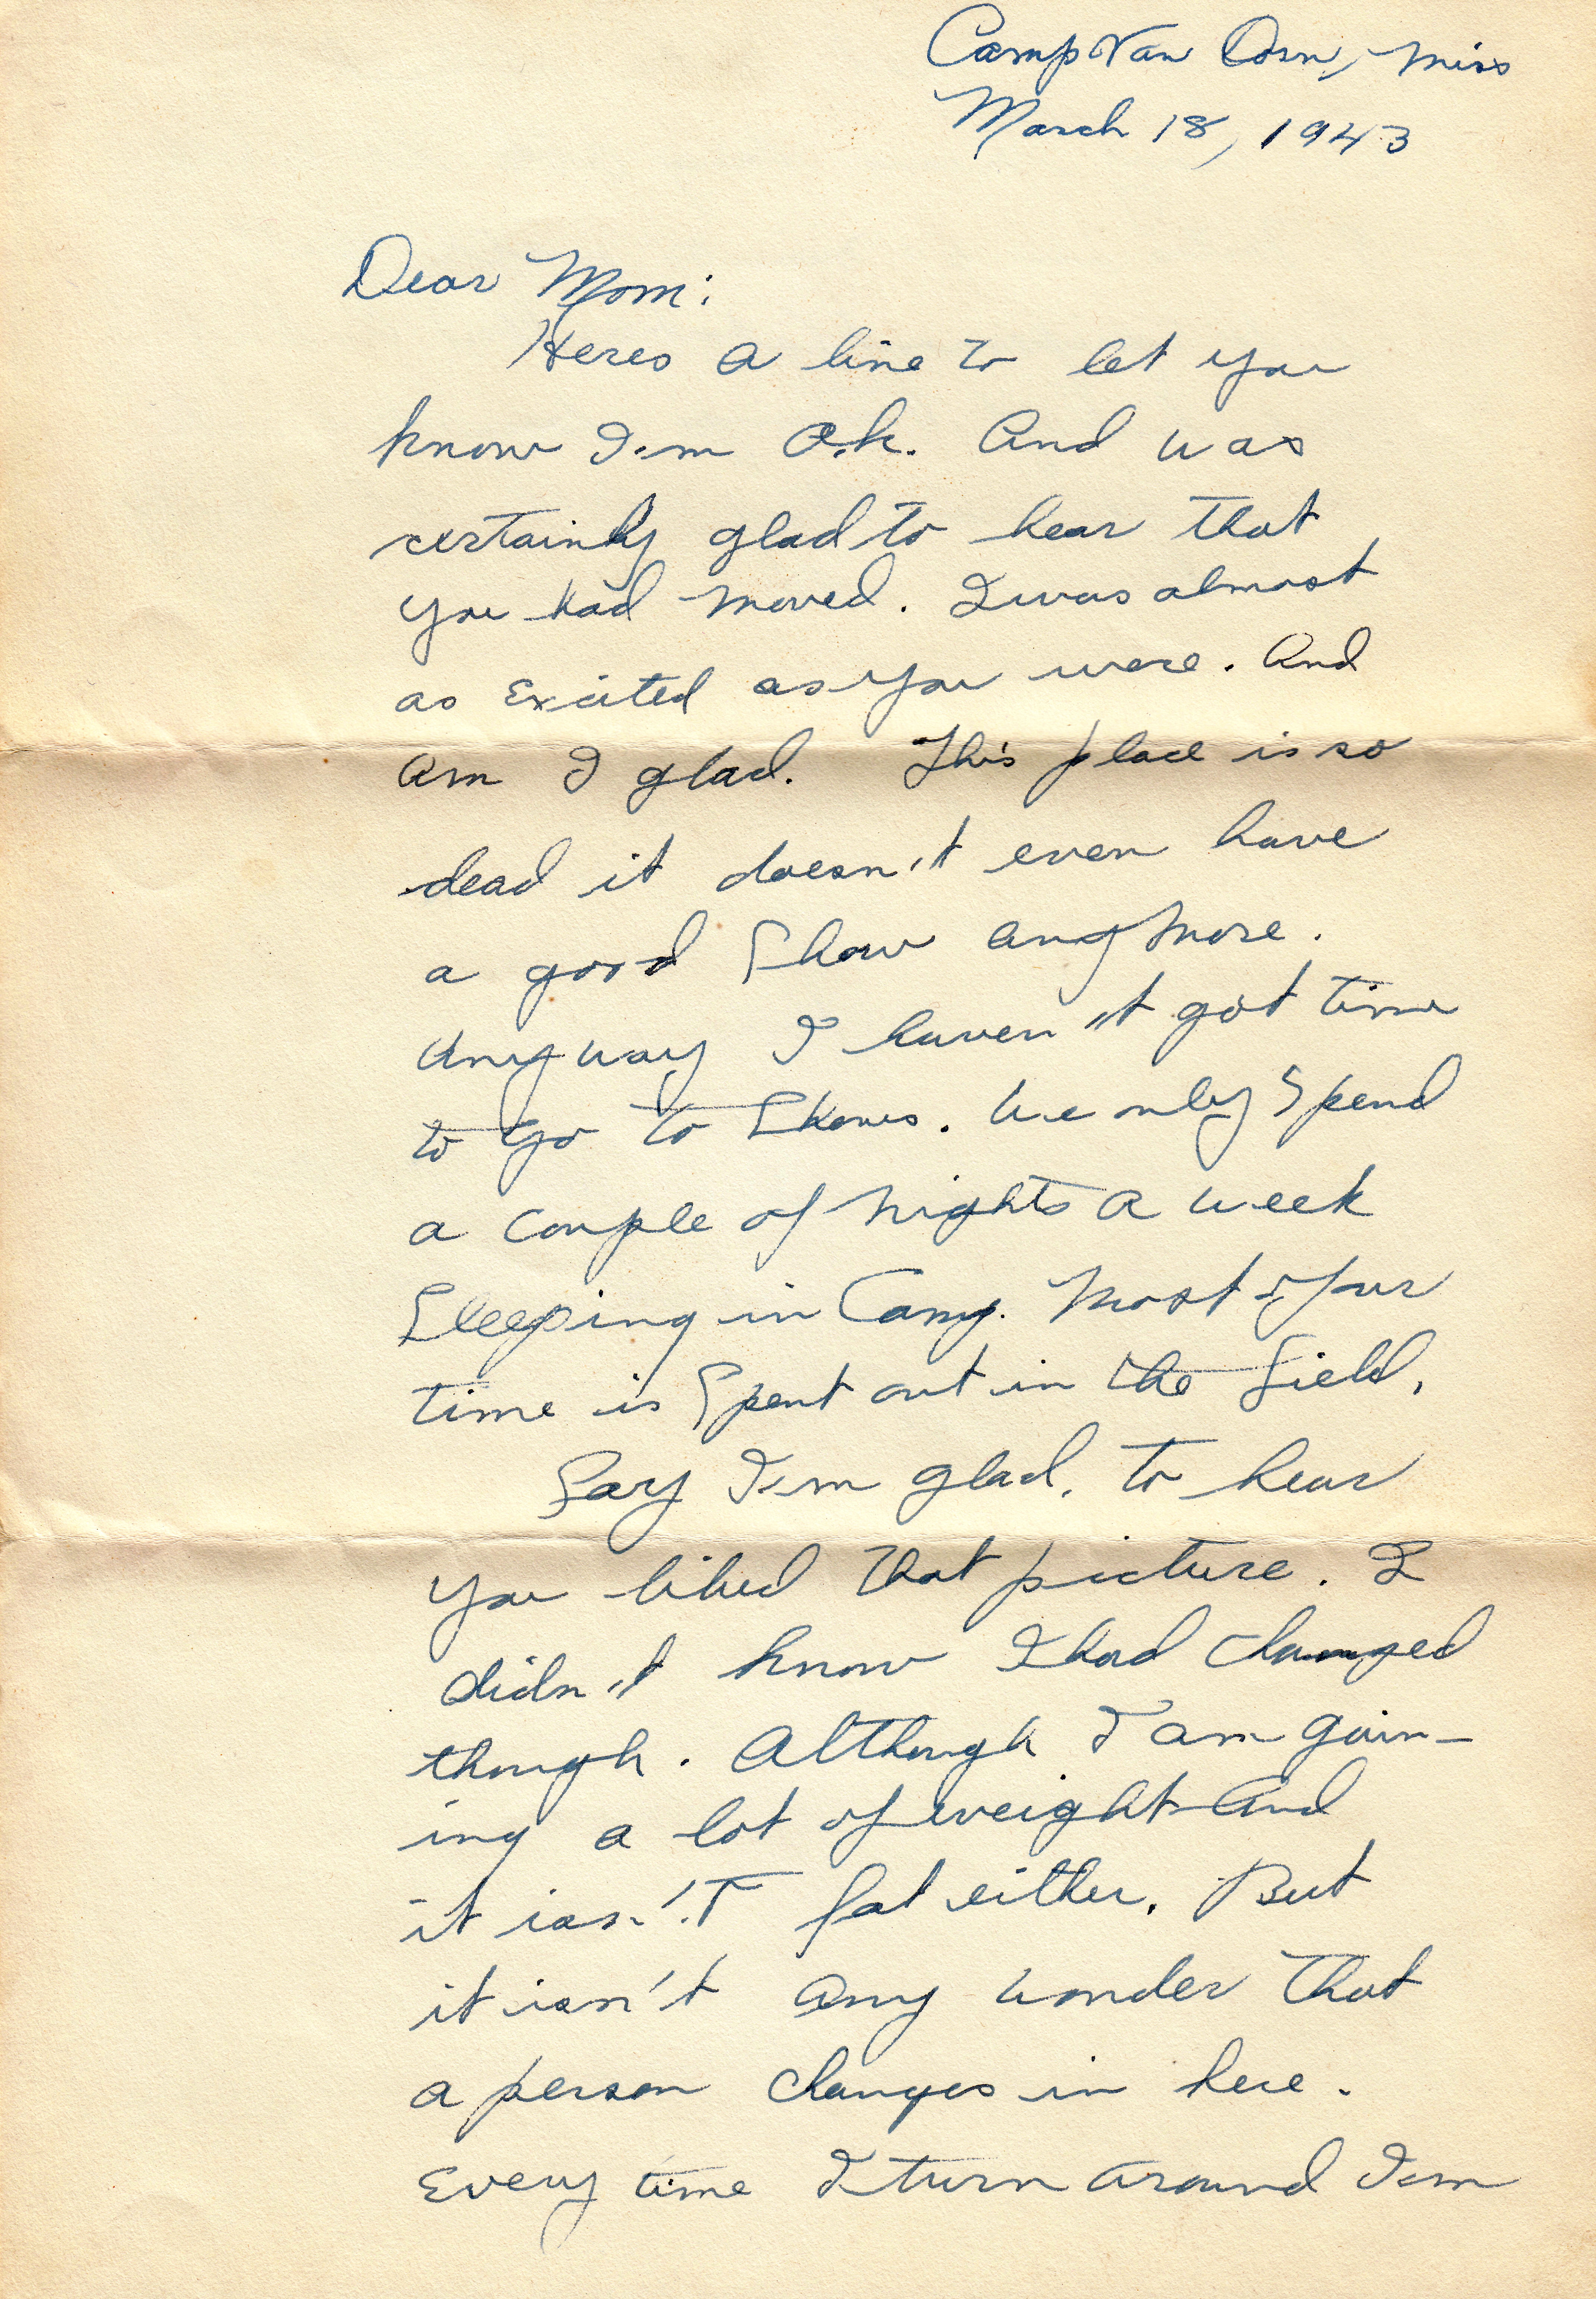 Camp Van Dorn, Miss
March 18, 1943
Dear Mom:
Heres a line to let you
know I'm O.k. And was
certainly glad to hear that
you had moved. I was almost
as Excited as you were. And
am I glad. This place is so
dead it doesn't even have
a good Show anymore.
Anyway I haven't got time
to Go to Shows. We only Spend
a couple of nights a week
Sleeping in Camp. Most of our
time is Spent out in the field.
Say I'm glad. to hear
you liked that picture. I
didn't know I had changed
though. Although I am gain-
ing a lot of weight and
it isn't fat either. But
it isn't any wonder that
a person changes in here.
Every time I turn around I'm